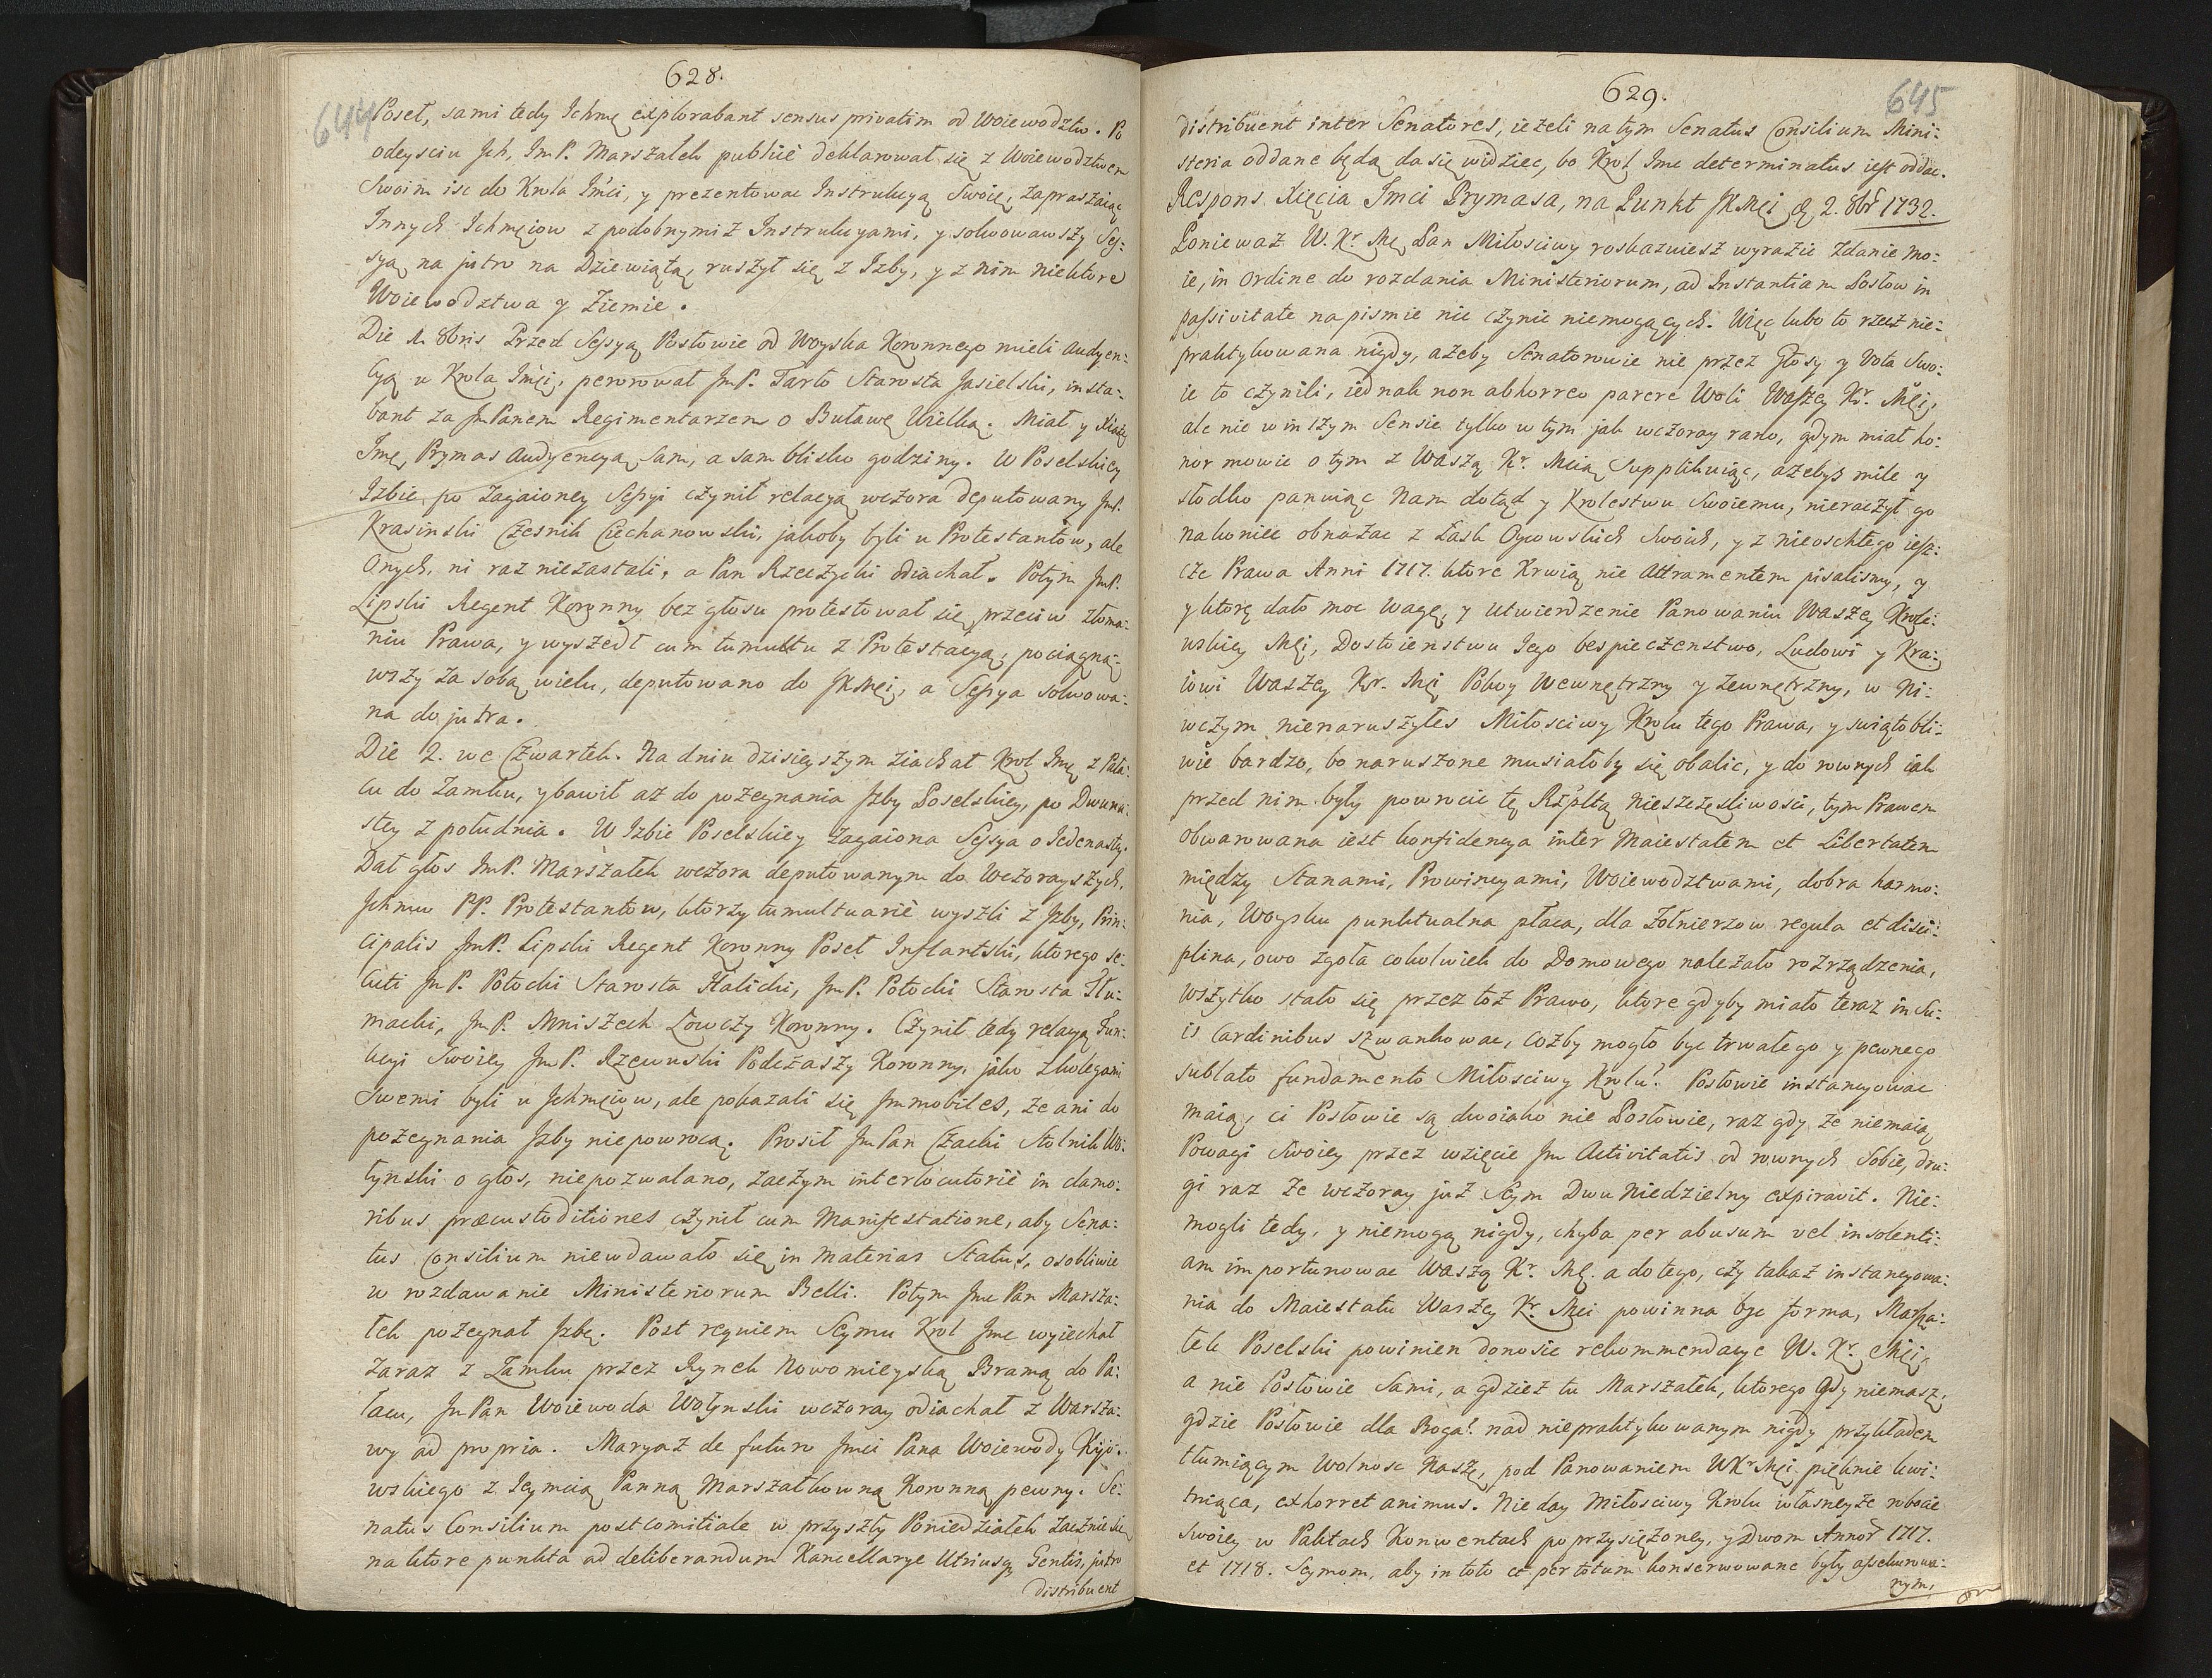 628.
644
Poseł, sami tedy Ichmę explorabant sensus privatim od Woiewodztw. Po
odeysciu Jch, JmP. Marszałek publicè deklarował się z Woiewodztwem
Swoim isc do Krola Jmci, y prezentowac Instrukcyą Swoię, zapraszaiąc
Innych Ichmęciow z podobnymiż Instrukcyami, y solwowawszy Ses:
syą na jutro na Dziewiątą, ruszył się z Izby, y z nim niektore
Woiewodztwa y Ziemie.
Die 1. 8bris Przed Sessyą Posłowie od Woyska Koronnego mieli Audyen:
cyą u Krola Jmći, perorował JmP. Tarło Starosta Jasielski, insta:
bant za JmPanem Regimentarzem o Buławę Wielką. Miał y Xiąże
Jmę Prymas Audyencyą Sam, a sam blisko godziny. W Poselskiey
Izbie po zagaioney Sessyi czynił relacyą wczora deputowany JmP.
Krasinski Czesnik Ciechanowski, jakoby byli u Protestantow, ale
Onych, ni raz niezastali, a Pan Rzeczycki odiachał. Potym JmP.
Lipski Regent Koronny bez głosu protestował się przeciw złoma:
niu Prawa, y wyszedł cum tumultu z Protestacyą, pociągną:
wszy za sobą wielu, deputowano do JKMći, a Sessya solwowa:
na do jutra.
Die 2. we Czwartek. Na dniu dzisieyszym ziachał Krol Jmę z Pała:
cu do Zamku, y bawił aż do pożegnania Jzby Poselskiey, po Dwuna:
stey z południa. W Izbie Poselskiey zagaiona Sessya o Iedenastey.
Dał głos JmP. Marszałek wczora deputowanym do Wczorayszych,
Jchmw PP. Protestantow, ktorzy tumultuariè wyszli z Jzby, Prin:
cipalis JmP. Lipski Regent Koronny Poseł Inflantski, ktorego se:
cuti JmP. Potocki Starosta Halicki, JmP. Potocki Starosta Tłu:
macki, JmP. Mniszech Łowczy Koronny. Czynił tedy relacyą Fun:
kcyi Swoiey JmP. Rzewuski Podczaszy Koronny, jako z kolegami
Swemi byli u Jchmęciow, ale pokazali się Jmmobiles, że ani do
pożegnania Jzby niepowrocą. Prosił JmPan Czacki Stolnik Wo:
łynski o głos, niepozwalano, zaczym interlocutoriè in clamo:
ribus præcustoditiones czynił cum Manifestatione, aby Sena:
tus Consilium niewdawało się in Materias Status, osobliwie
w rozdawanie Ministeriorum Belli. Potym Jmc Pan Marsza:
łek pożegnał Jzbę. Post requiem Seymu Krol Jmc wyiechał
zaraz z Zamku przez Rynek Nowomieyską Bramą do Pa:
łacu, JmPan Woiewoda Wołynski wczoray odiachał z Warsza:
wy ad propria. Maryaż de futuro Jmci Pana Woiewody Kijo:
wskiego z Ieymcią Panną Marszałkowną Koronną pewny. Se:
natus Consilium postcomitiale w przyszły Poniedziałek zacznie się
na ktore punkta ad deliberandum Kancellarye Utriusq Gentis, jutro
distribuent
629.
645
distribuent inter Senatores, ieżeli natym Senatus Consilium Mini:
steria oddane będą da się widziec, bo Krol Jmc determinatus iest oddac.
Respons Xięcia Jmci Prymasa, na Punkt JKMći D. 2. 8br 1732.
Ponieważ W. Kr. Mć Pan Miłosciwy roskazuiesz wyrazic zdanie mo:
ie, in Ordine do rozdania Ministeriorum, ad Instantiam Posłow in
passivitate na pismie nic czynic niemogących. Więc lubo to rzecz nie:
praktykowana nigdy, ażeby Senatorowie nie przez Głosy y Vota Swo:
ie to czynili, iednak non abhorreo parere Woli Waszey Kr. Mći,
ale nie w inszym Sensie tylko w tym jak wczoray rano, gdym miał ho:
nor mowic o tym z Waszą Kr. Mcią Supplikuiąc, ażebyś mile y
słodko panuiąc Nam dotąd y Krolestwu Swoiemu, nieraczył go
nakoniec obnażac z Łask Oycowskich Swoich, y z nieoschłego iesz:
cze Prawa Anni 1717. ktore Krwią nie Attramentem pisalismy, y
y ktore dało moc wagę, y Utwierdzenie Panowaniu Waszey Krole:
wskiey Mći, Dostoienstwu Jego bespieczenstwo, Ludowi y Kra:
iowi Waszey Kr. Mći Pokoy Wewnętrzny y zewnętrzny, w Ni:
wczym nienaruszyłes Miłosciwy Krolu tego Prawa, y swiątobli:
wie bardzo, bo naruszone musiałoby się obalic, y do rownych iak
przed nim były powrocic tę Rzpltą nieszczęsliwosci, tym Prawem
obwarowana iest konfidencya inter Maiestatem et Libertatem
między Stanami, Prowincyami, Woiewodztwami, dobra harmo:
nia, Woysku punktualna płaca, dla Żołnierzow regula et disci:
plina, owo zgoła cokolwiek do Domowego należało rozrządzenia,
wszytko stało się przez toż Prawo, ktore gdyby miało teraz in Su:
is Cardinibus szwankowac, cożby mogło byc trwałego y pewnego
sublato fundamento Miłosciwy Krolu? Posłowie instancyowac
maią, ci Posłowie są dwoiako nie Posłowie, raz gdy że niemaią
Powagi Swoiey przez wzięcie Jm Activitatis od rownych Sobie, dru:
gi raz że wczoray już Seym Dwu Niedzielny expiravit. Nie:
mogli tedy, y niemogą nigdy, chyba per abusum vel insolenti:
am importunowac Waszą Kr. Mć. a do tego, czy takaż instancyowa:
nia do Maiestatu Waszey Kr. Mci powinna byc forma, Marsza:
łek Poselski powinien donosic rekommendacye W. Kr. Mći,
a nie Posłowie Sami, a gdzież tu Marszałek, ktorego gdy niemasz,
gdzie Posłowie dla Boga? nad niepraktykowanym nigdy przykładem
tłumiącym Wolnosc Naszę, pod Panowaniem WKr Mći pięknie kwi:
tniąca, exhorret animus. Nie day Miłosciwy Krolu własneyże robocie
Swoiey w Paktach Konwentach poprzysiężoney, y Dwom Annor 1717.
et 1718. Seymom, aby in toto et per totum konserwowane były assekurowa:
nym,